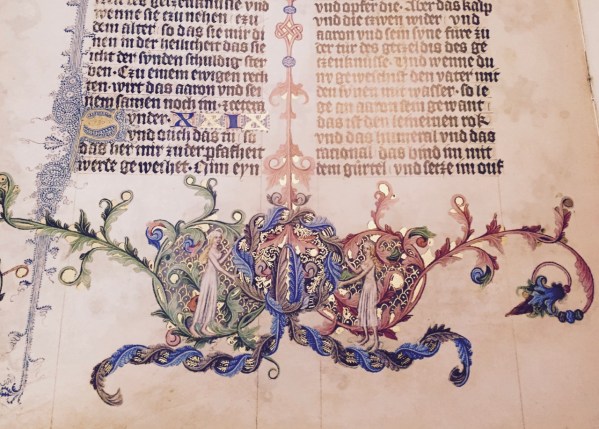 wenne sie zu nehen zu
dem alter so das sie mir di
nen in der heilicheit das sie
icht der synden schuldig ster
ben. Czu einem ewigen rech
ten. wirt das aaron und sei
nem samen noch im
XXIX
und ouch das tu
das her mir zu der pfafheit
werde geweihet. Nim eyn
und opfir die. Aber das kalp
und die czwen wider. und
aaron und sein syne füre zu
der tür des getzeldis des ge
zeuknisse. Und wenne du
geweschest den vater mit
den synen mit wasser. so le
ge an aaron sein gewant
das ist den leineinen rok
und das humeral und das
racional das bind im mit
dem gürtel. und setze im ouf